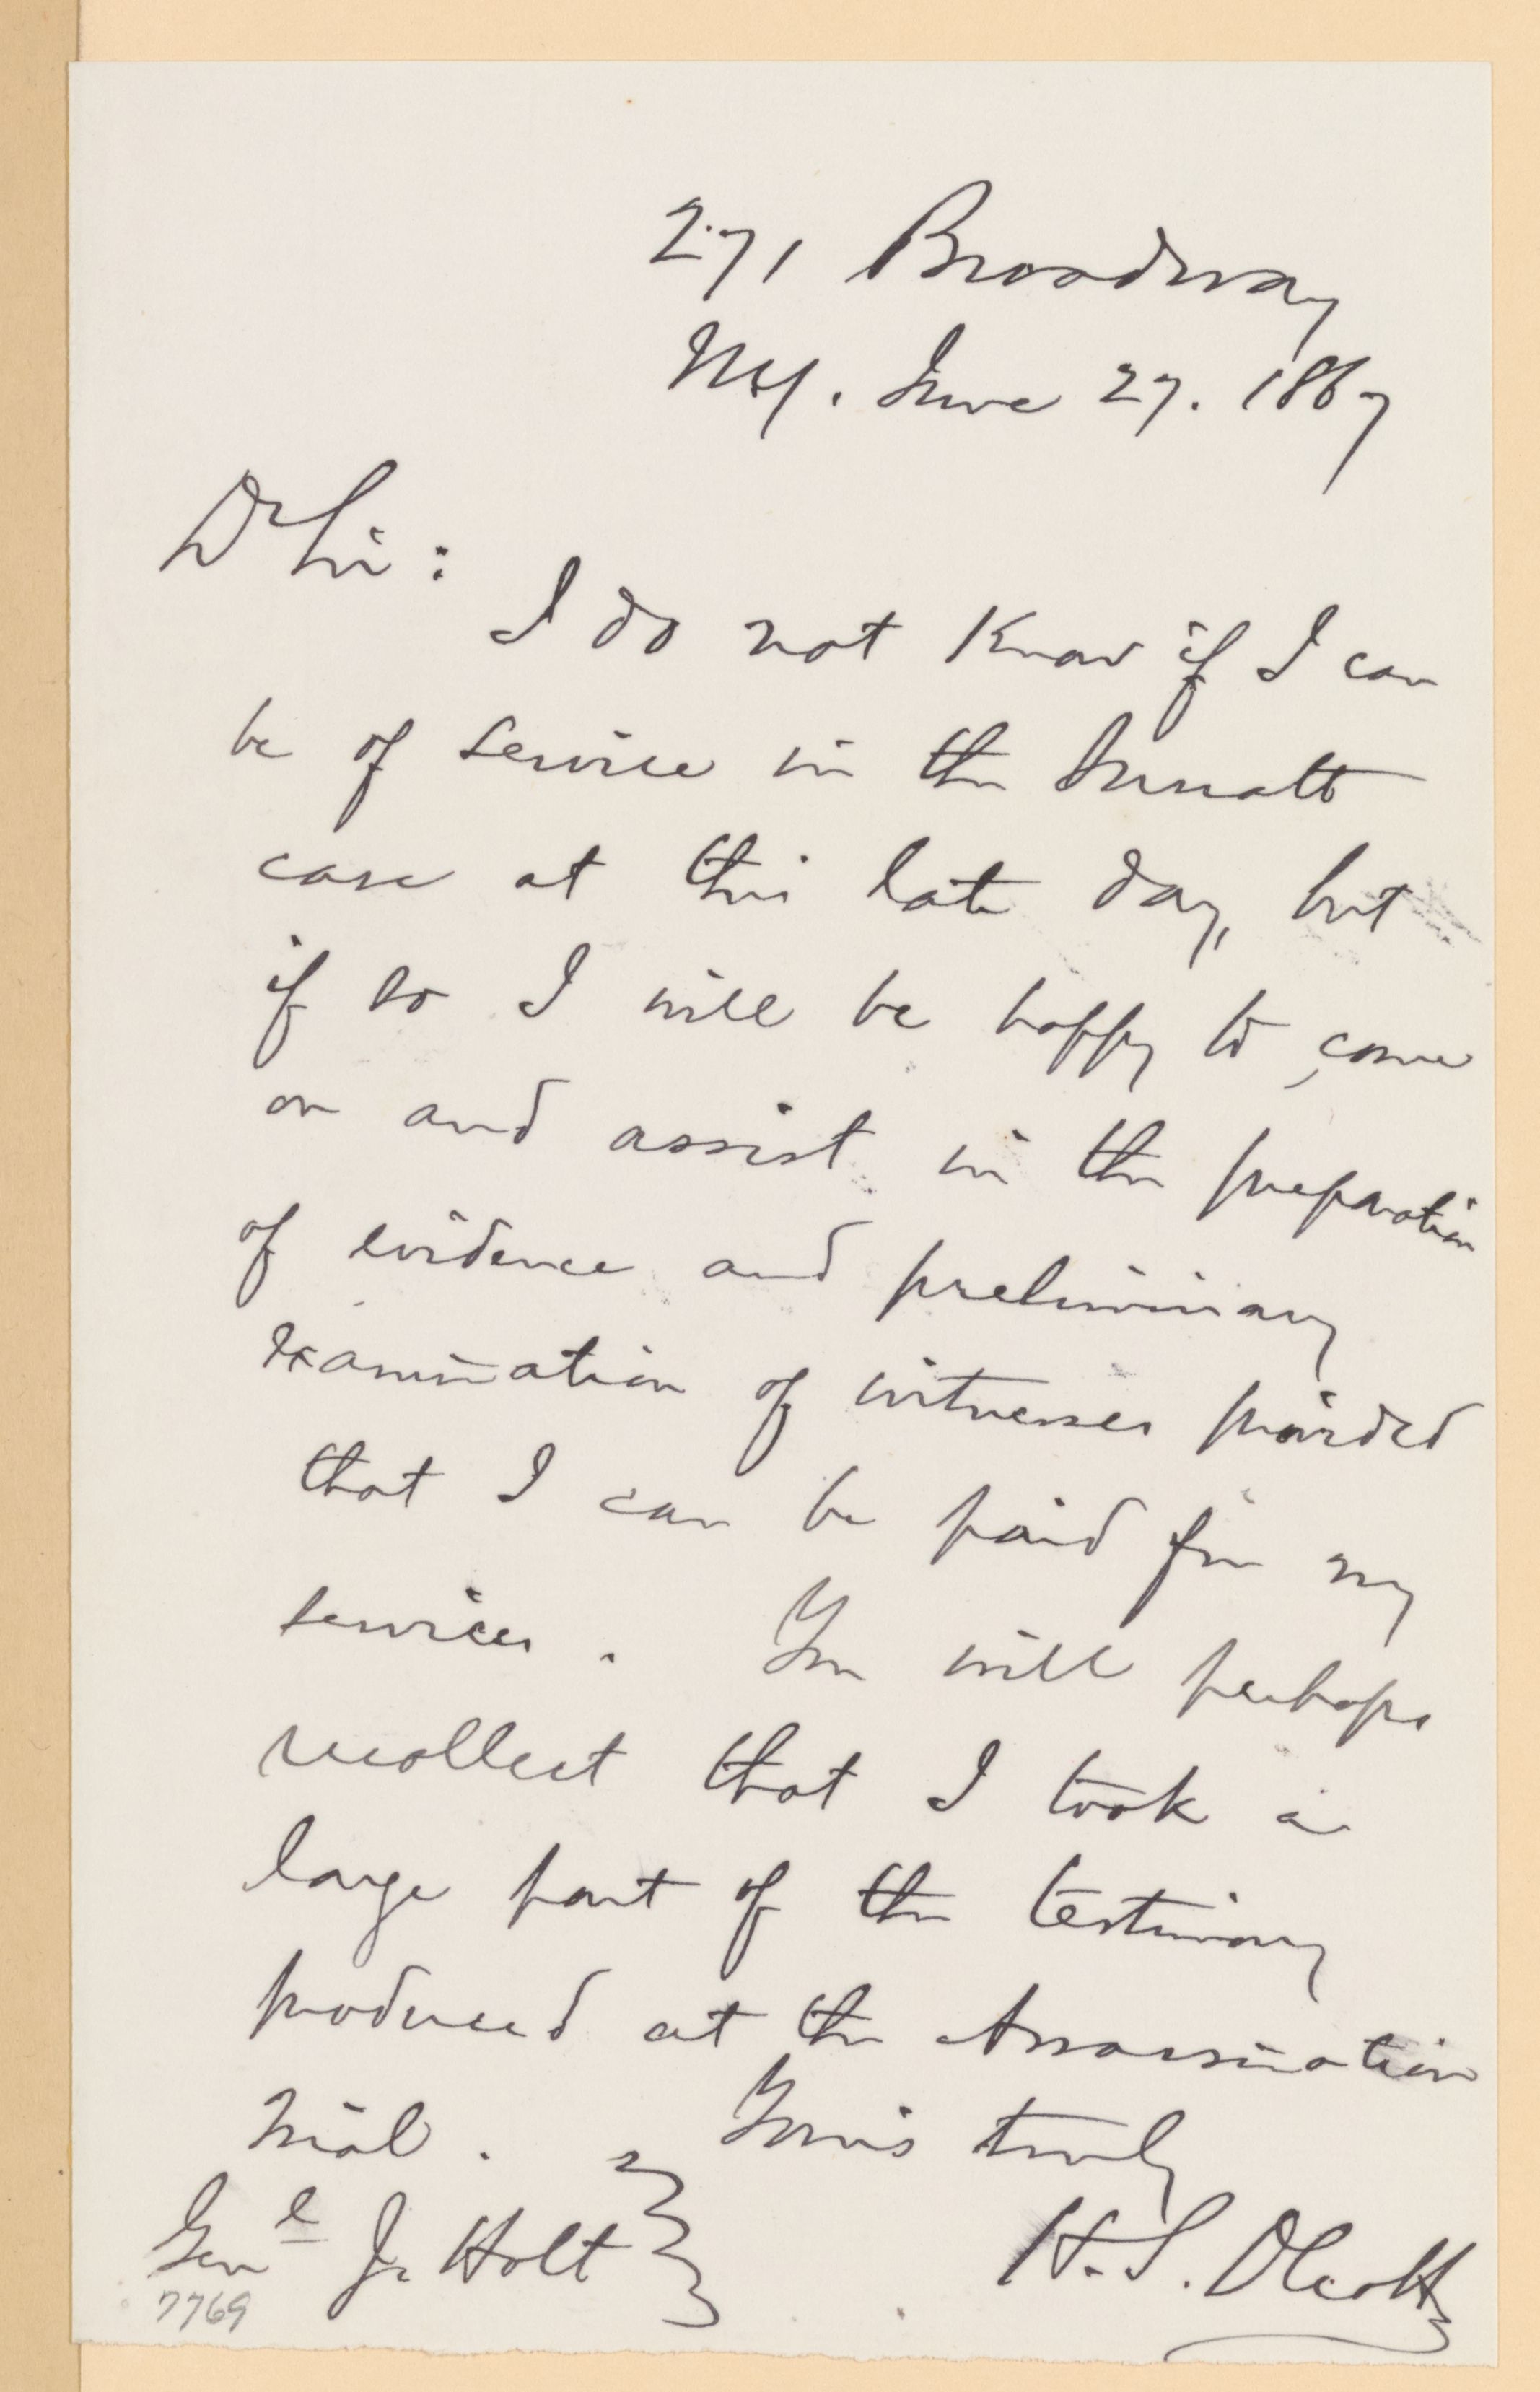 271 Broadway
NY. June 27. 1867
Dr Sir:
I do not Know if I can
be of service in the Surratt
case at this late day, but
if so I will be happy to come
on and assist in the preparation
of evidence and preliminary
examination of witnesses provided
that I can be paid for my
services. You will perhaps
recollect that I took a
large part of the testimony
produced at the Assassination
trial. Yours truly
Genl J. Holt H. S. Olcott
7769